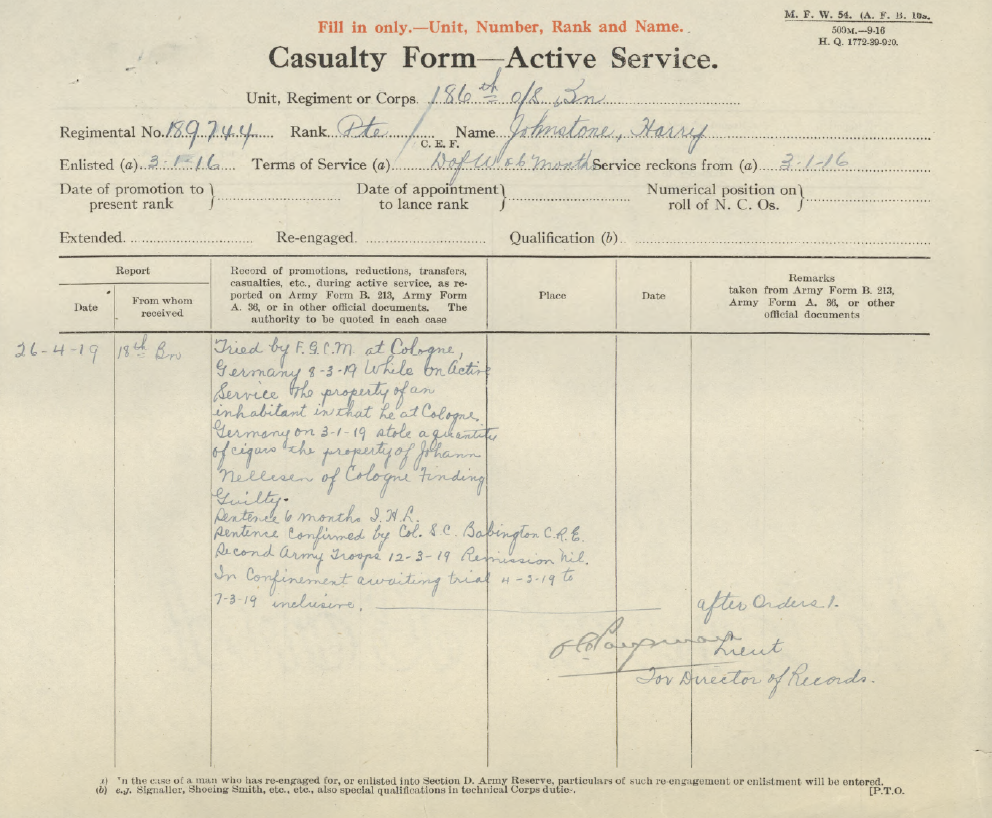 M. F. W. 54. (A. F. B. 103.
500M.—9-16
H. Q. 1772-39-920.
Fill in only.—Unit, Number, Rank and Name.
Casualty Form—Active Service.
Unit, Regiment or Corps. 186th o/s Bn
Regimental No. 189744 Rank Pte Name Johnstone, Harry
C. E. F.
Enlisted (a) 3-1-16 Terms of Service (a) D of W & 6 months Service reckons from (a) 3-1-16
Date of promotion to present rank
Date of appointment to lance rank
Numerical position on roll of N. C. Os.
Extended. Re-engaged. Qualification (b)
Report
Date
From whom received
Record of promotions, reductions, transfers,
casualties, etc., during active service, as re-
ported on Army Form B. 213, Army Form
A. 36, or in other official documents. The
authority to be quoted in each case
Place
Date
Remarks
taken from Army Form B. 213,
Army Form A. 36, or other
official documents
26-4-19 18th Bn Tried by F.G.C.M. at Cologne,
Germany 8-3-19 While on Active
Service the property of an
inhabitant in that he at Cologne
Germany on 3-1-19 stole a quantity
of cigars the property of Johann
Nellesen of Cologne Finding
Guilty.
Sentence 6 months I.H.L.
Sentence Confirmed by Col. S.C. Babington C.R.E.
Second Army Troops 12-3-19 Remission Nil.
In Confinement awaiting trial 4-3-19 to
7-3-19 inclusive.
after Orders 1.
Lieut
For Director of Records.
a) In the case of a man who has re-engaged for, or enlisted into Section D. Army Reserve, particulars of such re-engagement or enlistment will be entered.
(b) e.g. Signaller, Shoeing Smith, etc., etc., also special qualifications in technical Corps duties.
[P.T.O.